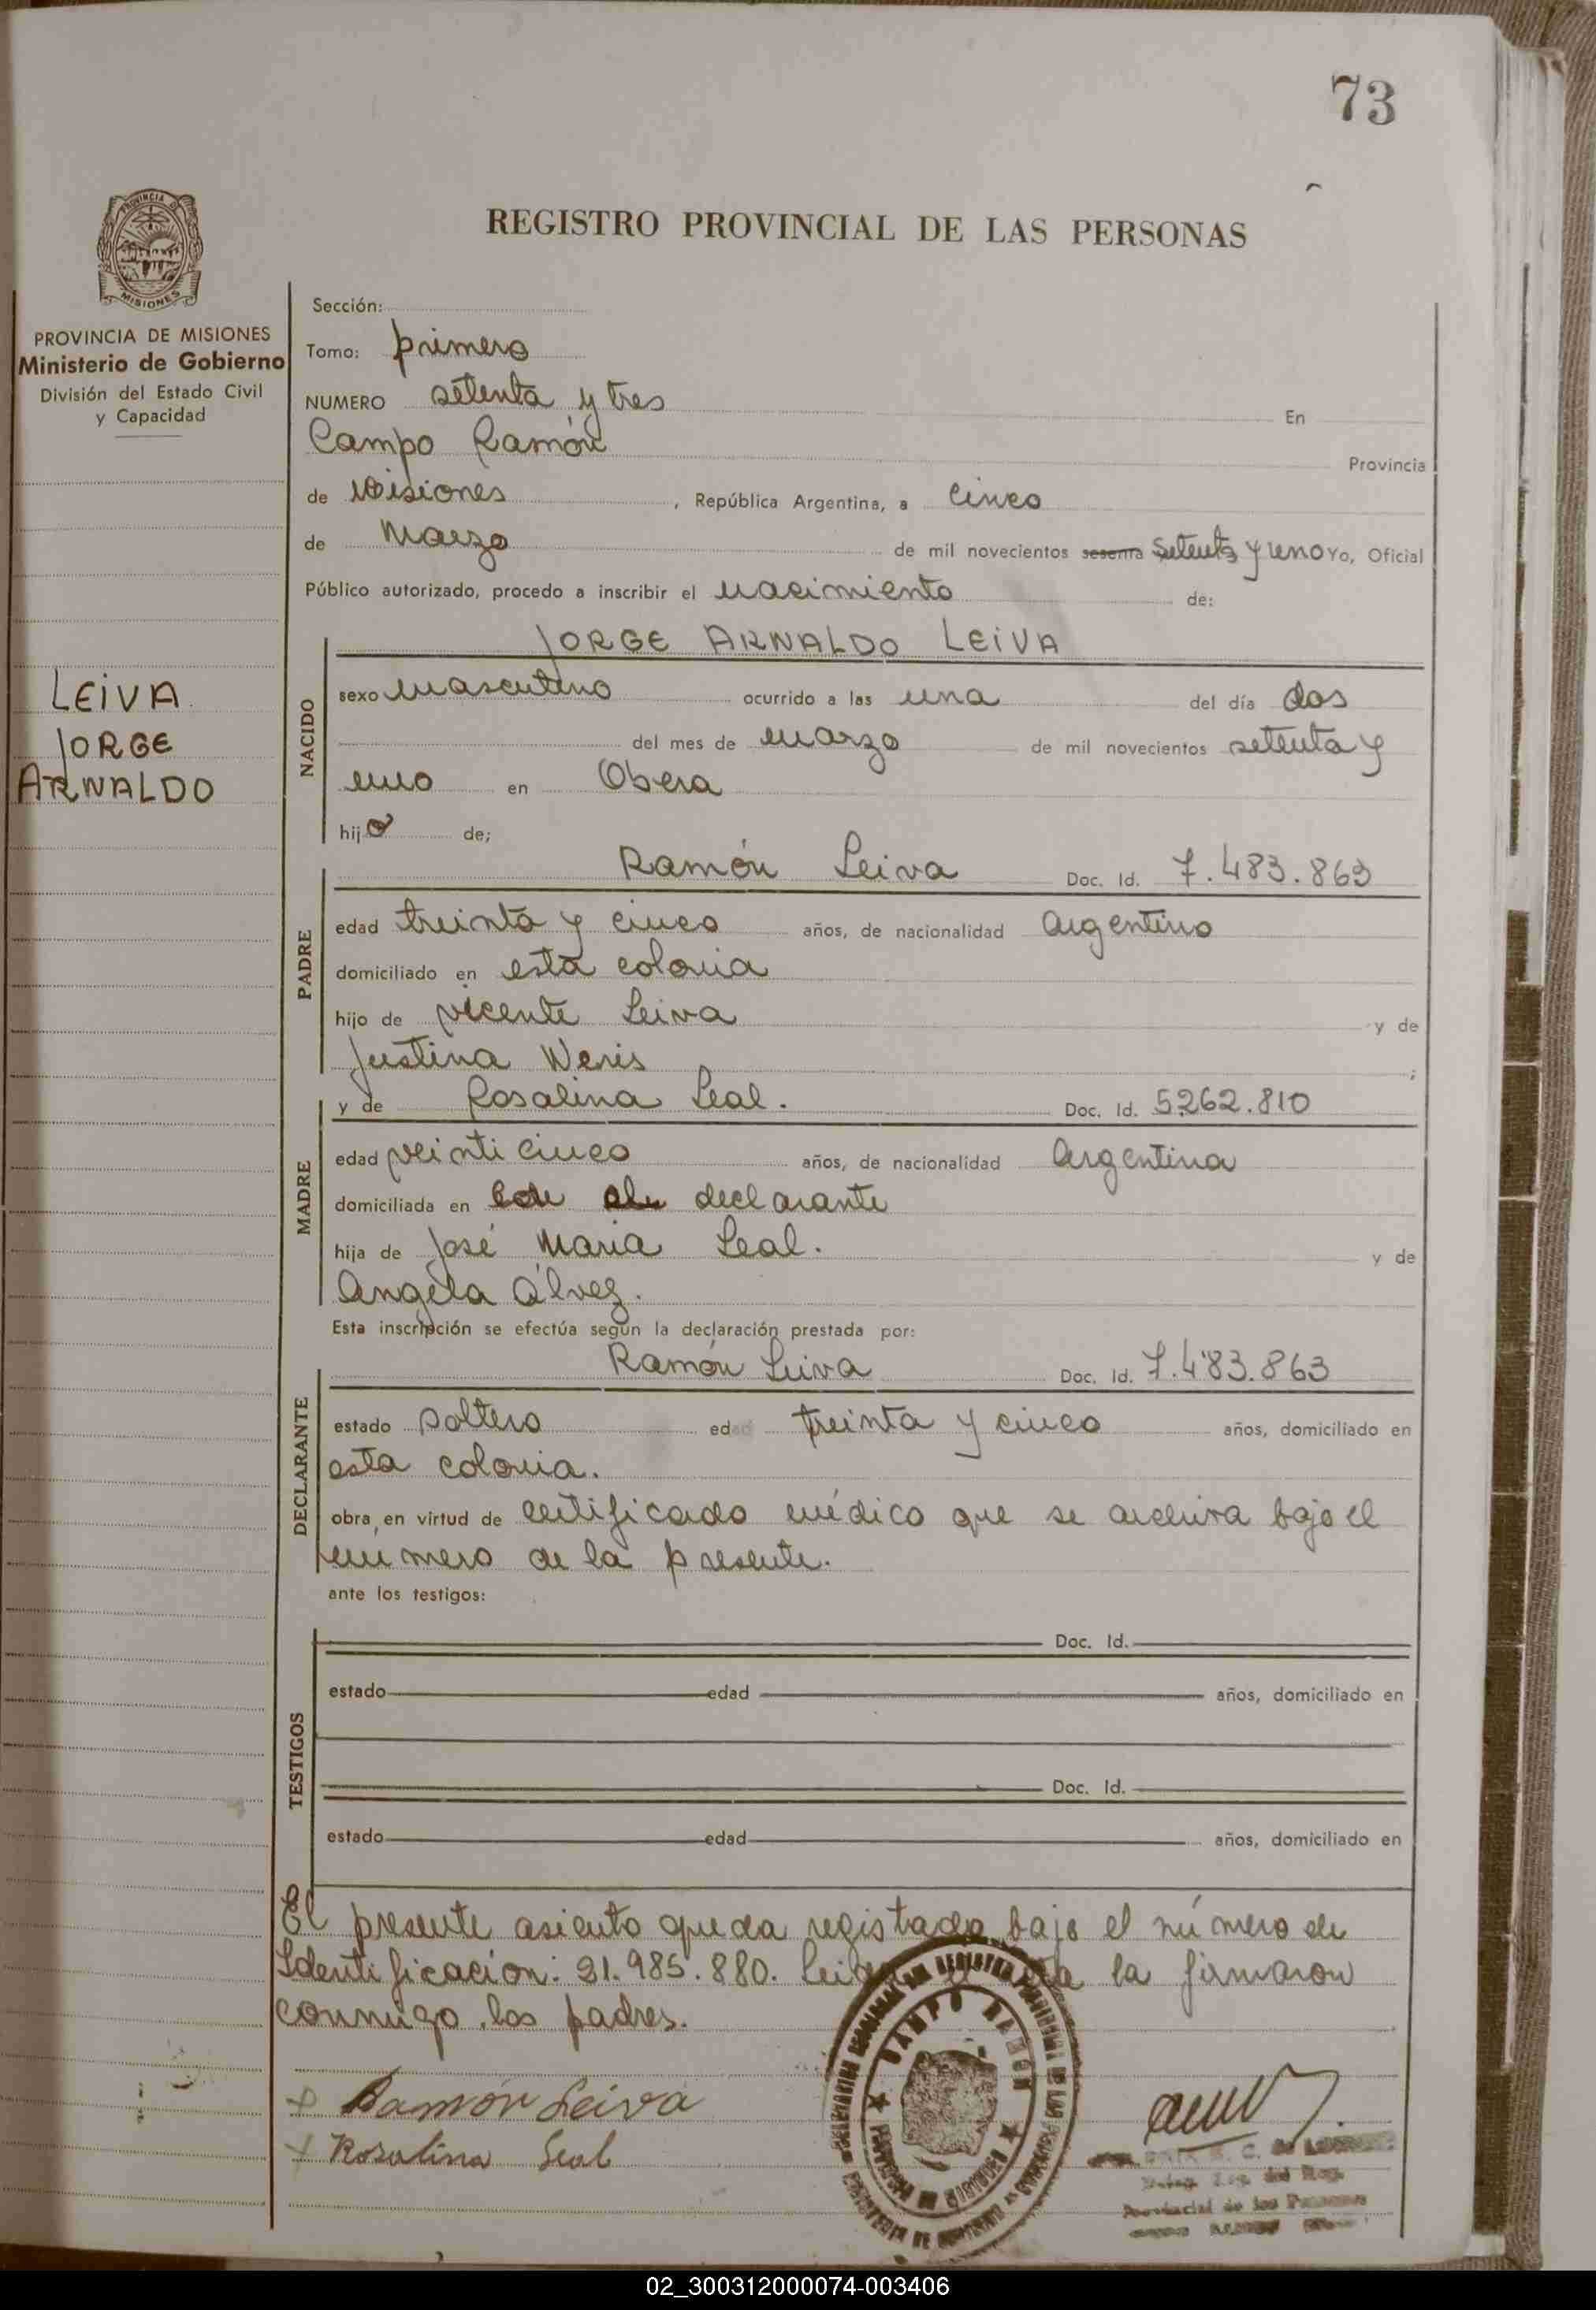 73
REGISTRO PROVINCIAL DE LAS PERSONAS
PROVINCIA DE MISIONES
PROVINCIA DE MISIONES
Ministerio de Gobierno
División del Estado Civil
y Capacidad
LEIVA
JORGE
ARNALDO
Sección:
Tomo: primero
NUMERO setenta y tres En
Campo Ramón Provincia
de Misiones, República Argentina, a cinco
de Marzo de mil novecientos sesenta setenta y uno Yo, Oficial
Público autorizado, procedo a inscribir el nacimiento de:
JORGE ARNALDO LEIVA
NACIDO
sexo masculino ocurrido a las una del día dos
del mes de marzo de mil novecientos setenta y
uno en Obera
hijo de;
Ramón Leiva Doc. Id. 7.483.863
PADRE
edad treinta y cinco años, de nacionalidad argentino
domiciliado en esta colonia
hijo de vicente Leiva y de
Justina Weris ;
y de Rosalina Leal. Doc. Id. 5.262.810
MADRE
edad veinticinco años, de nacionalidad argentina
domiciliada en declarante
hija de José Maria Leal. y de
Angela Alvez.
Esta inscripción se efectúa según la declaración prestada por:
Ramón Leiva Doc. Id. 7.483.863
DECLARANTE
estado soltero edad treinta y cinco años, domiciliado en
esta colonia.
obra, en virtud de certificado médico que se archiva bajo el
numero de la presente.
ante los testigos:
TESTIGOS
Doc. Id.
estado edad años, domiciliado en
Doc. Id.
estado edad años, domiciliado en
El presente asiento queda registrado bajo el número de
Identificación: 21.985.880. Leida la firmaron
conmigo los padres.
CAMPO RAMON
x Ramón Leiva
x Rosalina Leal
Provincial de las Personas
02_300312000074-003406